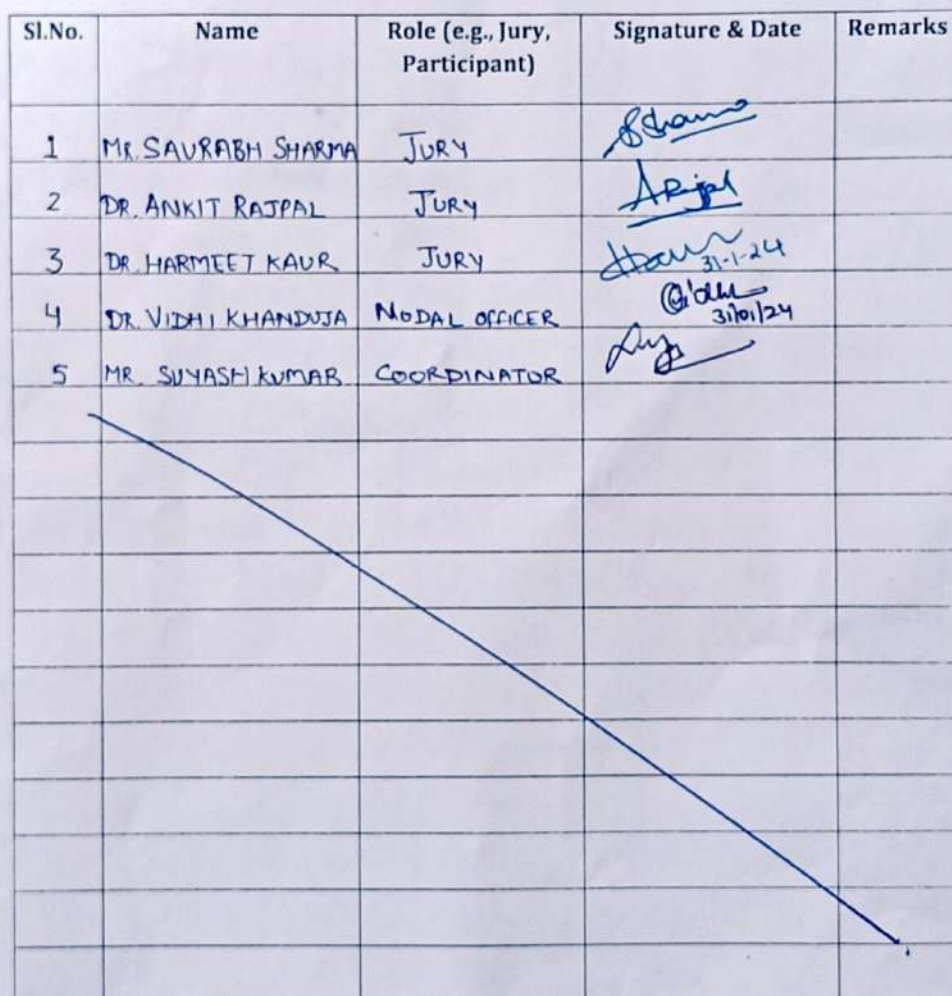 Sl.No. Name Role (e.g., Jury, Signature & Date Remarks
Participant)
1 MR. SAURABH SHARMA JURY SSharma
2 DR. ANKIT RAJPAL JURY ARajpal
3 DR. HARMEET KAUR JURY
31-1-24
4 DR. VIDHI KHANDUJA NODAL OFFICER
31/01/24
5 MR. SUYASH KUMAR COORDINATOR